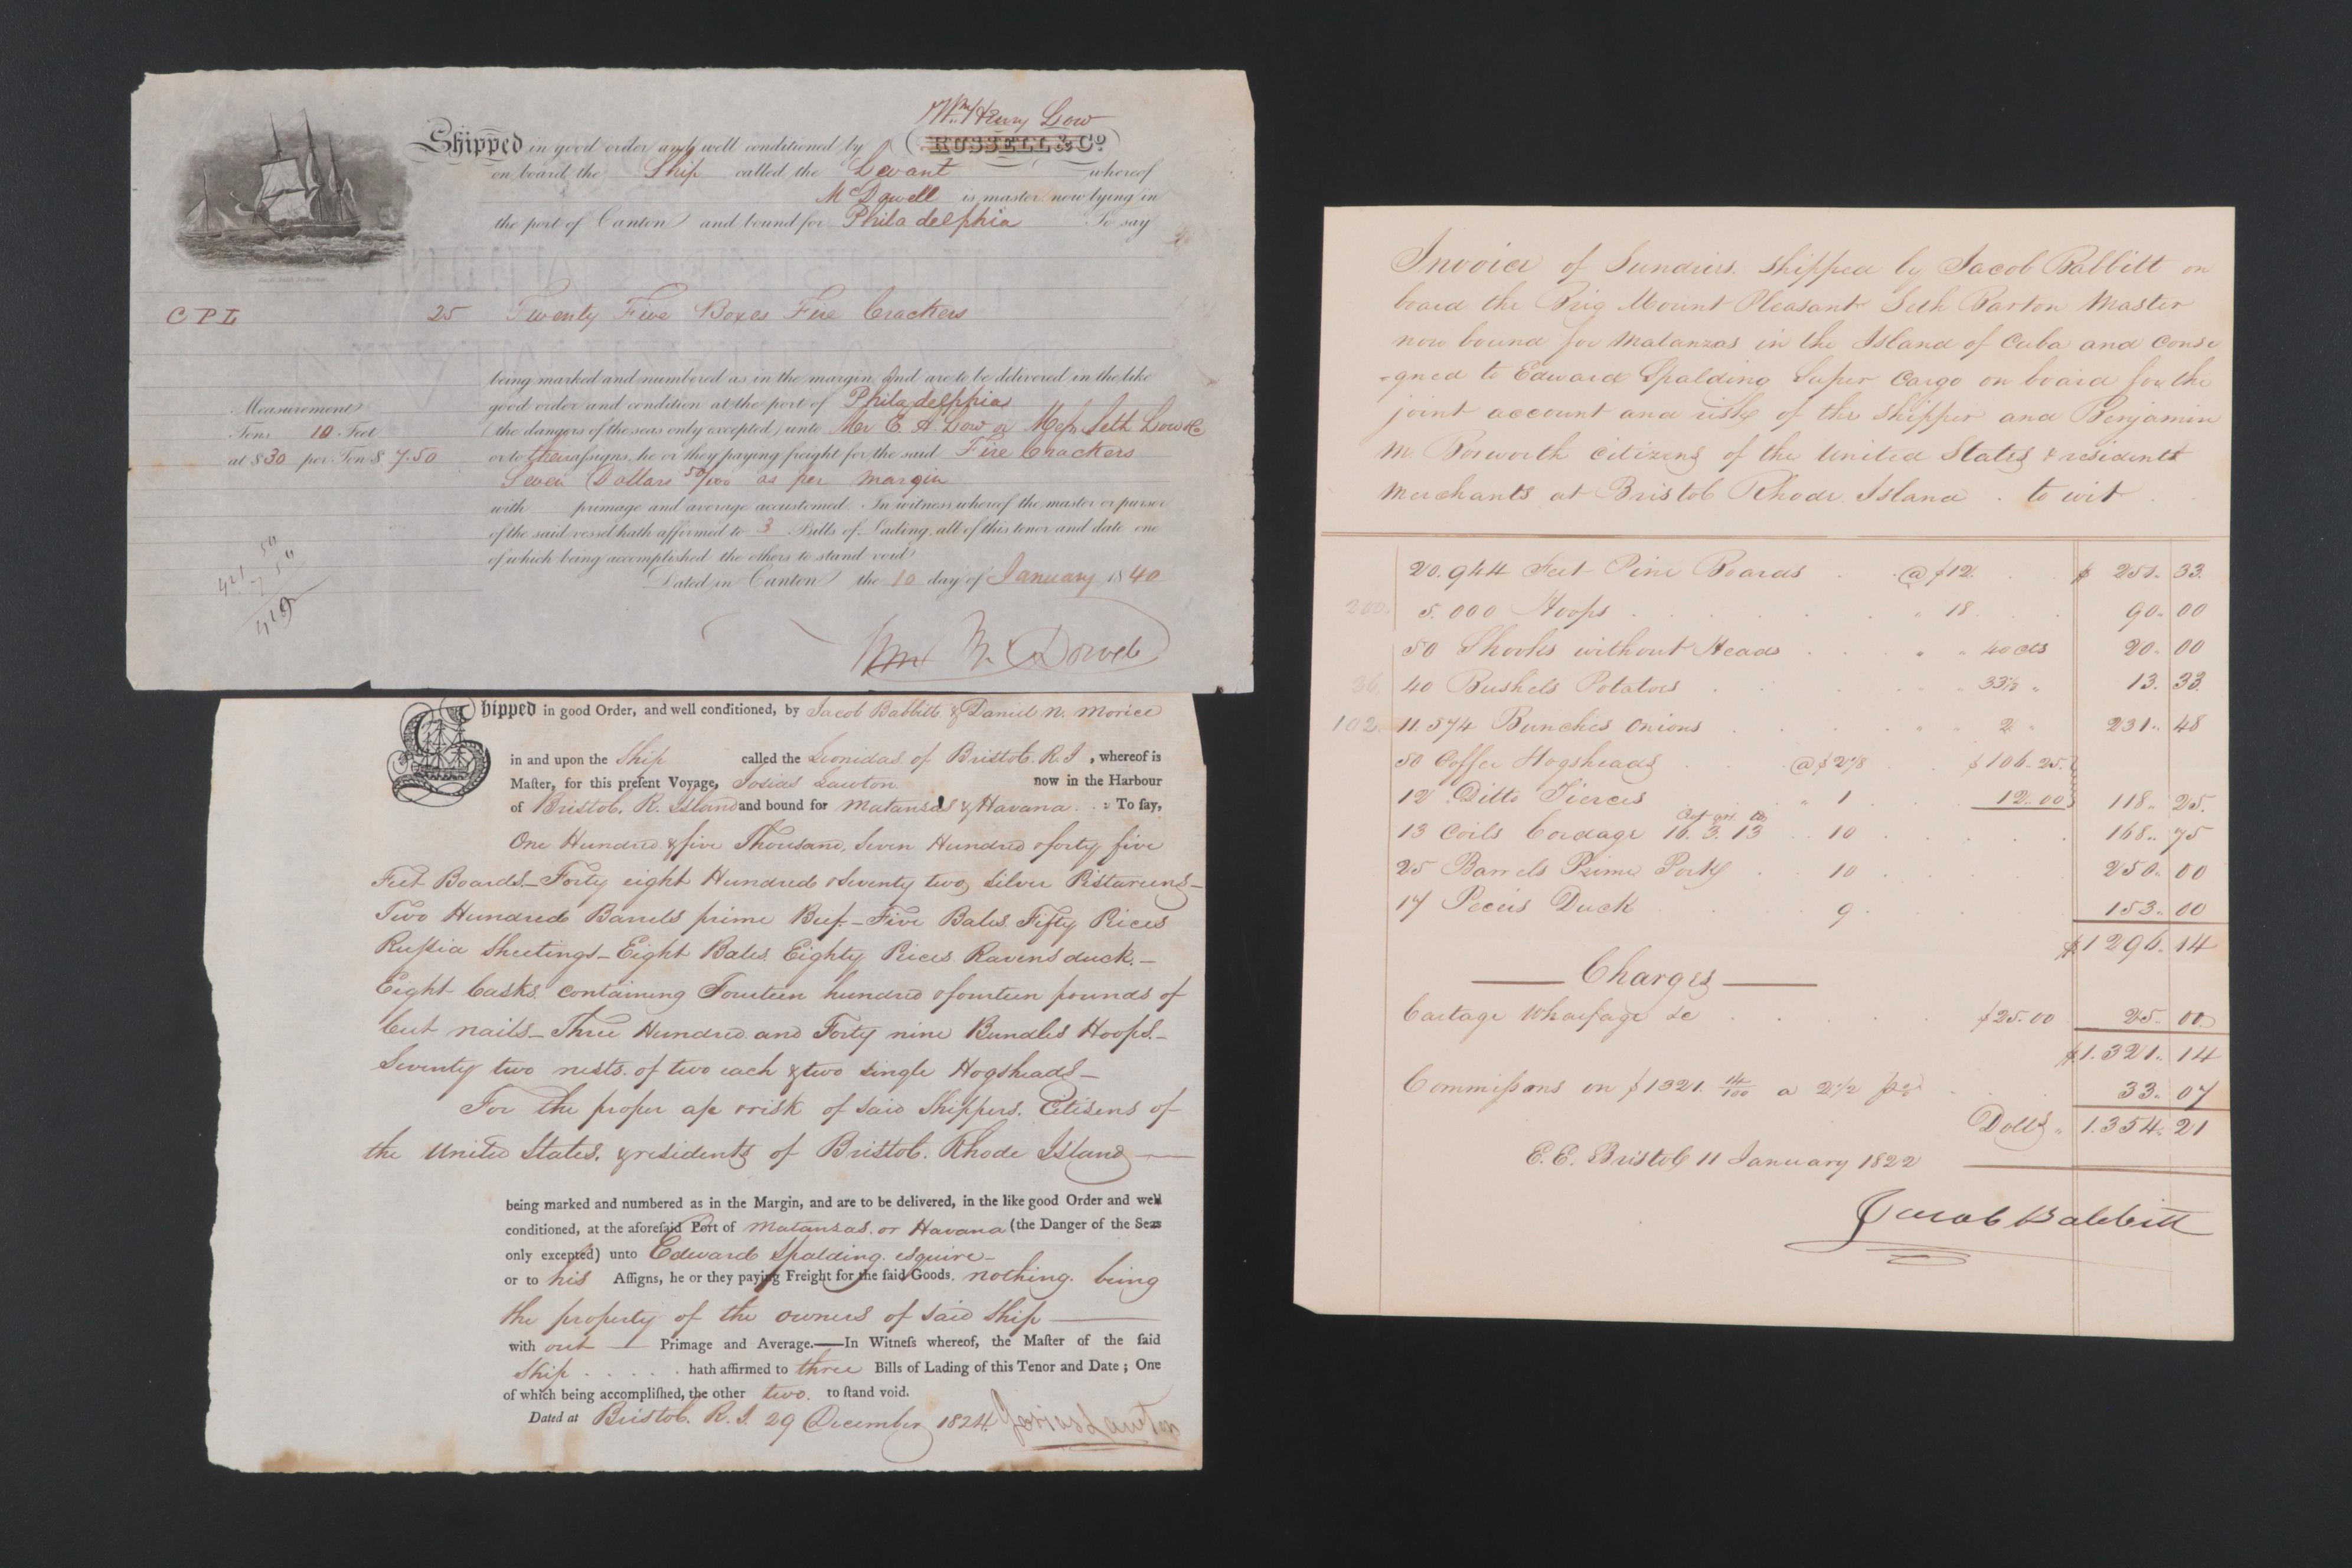 Wm Henry Low
Shipped in good order and well conditioned by (RUSSELL & Co)
on board the Ship called the Levant whereof
McDowell is master now lying in
the port of Canton and bound for Philadelphia To say
C P L 25 Twenty Five Boxes Fire Crackers
being marked and numbered as in the margin and are to be delivered in the like
Measurement good order and condition at the port of Philadelphia
Tons 10 Feet (the dangers of the seas only excepted) unto Mr E. A. Low or Messrs Seth Low & Co
at $30 per Ton $ 7.50 or to their assigns, he or they paying freight for the said Fire Crackers
Seven Dollars 50/100 as per margin
with primage and average accustomed. In witness whereof the master or purser
of the said vessel hath affirmed to 3 Bills of Lading, all of this tenor and date one
of which being accomplished the others to stand void
Dated in Canton the 10 day of January 1840
Wm McDowell
Shipped in good Order, and well conditioned, by Jacob Babbitt & Daniel N. Morice
in and upon the Ship called the Leonidas of Bristol. R. I , whereof is
Maſter, for this preſent Voyage, Josias Lawton now in the Harbour
of Bristol, R. Island and bound for Matansas & Havana. : To ſay,
One Hundred & five Thousand, Seven Hundred & forty five
Feet Boards – Forty eight Hundred & Seventy two, Silver Pistareens –
Two Hundred Barrels prime Beef. – Five Bales. Fifty Pieces
Russia Sheetings – Eight Bales. Eighty Pieces. Ravens duck. –
Eight Casks. containing Fourteen hundred & fourteen pounds of
Cut nails – Three Hundred and Forty nine Bundles Hoops. –
Seventy two nests. of two each & two single Hogsheads –
For the proper a/c & risk of said Shippers. Citisens of
the United States. & residents of Bristol. Rhode Island
being marked and numbered as in the Margin, and are to be delivered, in the like good Order and well
conditioned, at the aforeſaid Port of Matansas. or Havana (the Danger of the Seas
only excepted) unto Edward Spalding. esquire –
or to his Aſſigns, he or they paying Freight for the ſaid Goods, nothing. being
the property of the owners of said Ship
with out Primage and Average.—In Witneſs whereof, the Maſter of the ſaid
Ship . . . . . hath affirmed to three Bills of Lading of this Tenor and Date ; One
of which being accompliſhed, the other two. to ſtand void.
Dated at Bristol. R. I. 29 December 1824. Josias Lawton
Invoice of Sundries. shipped by Jacob Babbitt on
board the Brig Mount Pleasant Seth Barton Master
now bound for Matanzas in the Island of Cuba and Consi
-gned to Edward Spalding Super Cargo on board for the
joint account and risk of the shipper and Benjamin
M. Bosworth citizens of the United States & residents
Merchants at Bristol Rhode Island . to wit
20.944 Feet Pine Boards @ $12. $ 251. 33.
200. 5.000 Hoops " 18 90. 00
50 Shooks without Heads " " 40 cts 20. 00
36. 40 Bushels Potatoes " 33⅓ " 13. 33
102. 11.574 Bunches Onions " " 2 " 231. 48
50 Coffee Hogsheads @ $2⅛ $106.25.
12 Ditto Tierces " 1 12.00 118. 25.
13 Coils Cordage 16. 3. 13 10 168. 75
25 Barrels Prime Pork 10 250. 00
17 Peceis Duck 9 153. 00
$1296. 14
Charges
Cartage Wharfage &c $25.00 25. 00
$1.321. 14
Commissions on $1321. 14/100 a 2½ 33. 07
Dolls " 1.354. 21
E. E. Bristol 11 January 1822
Jacob Babbitt